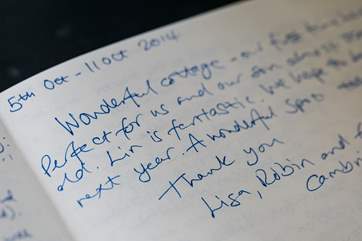 5th Oct - 11 Oct 2014
Wonderful cottage - our first time
Perfect for us and our son almost
old. Lin is fantastic. We hope to be
next year. A wonderful spot
Thank you
Lisa, Robin and
Camb